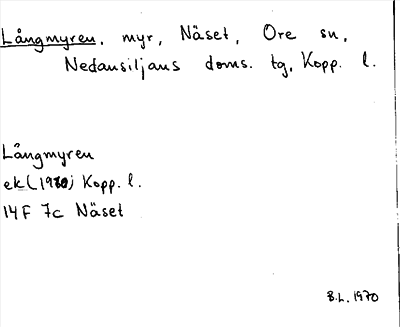 Långmyren, myr, Näset, Ore sn,
Nedansiljans doms. tg, Kopp. l.
Långmyren
ek (1970) Kopp. l.
14F 7c Näset
B.L. 1970